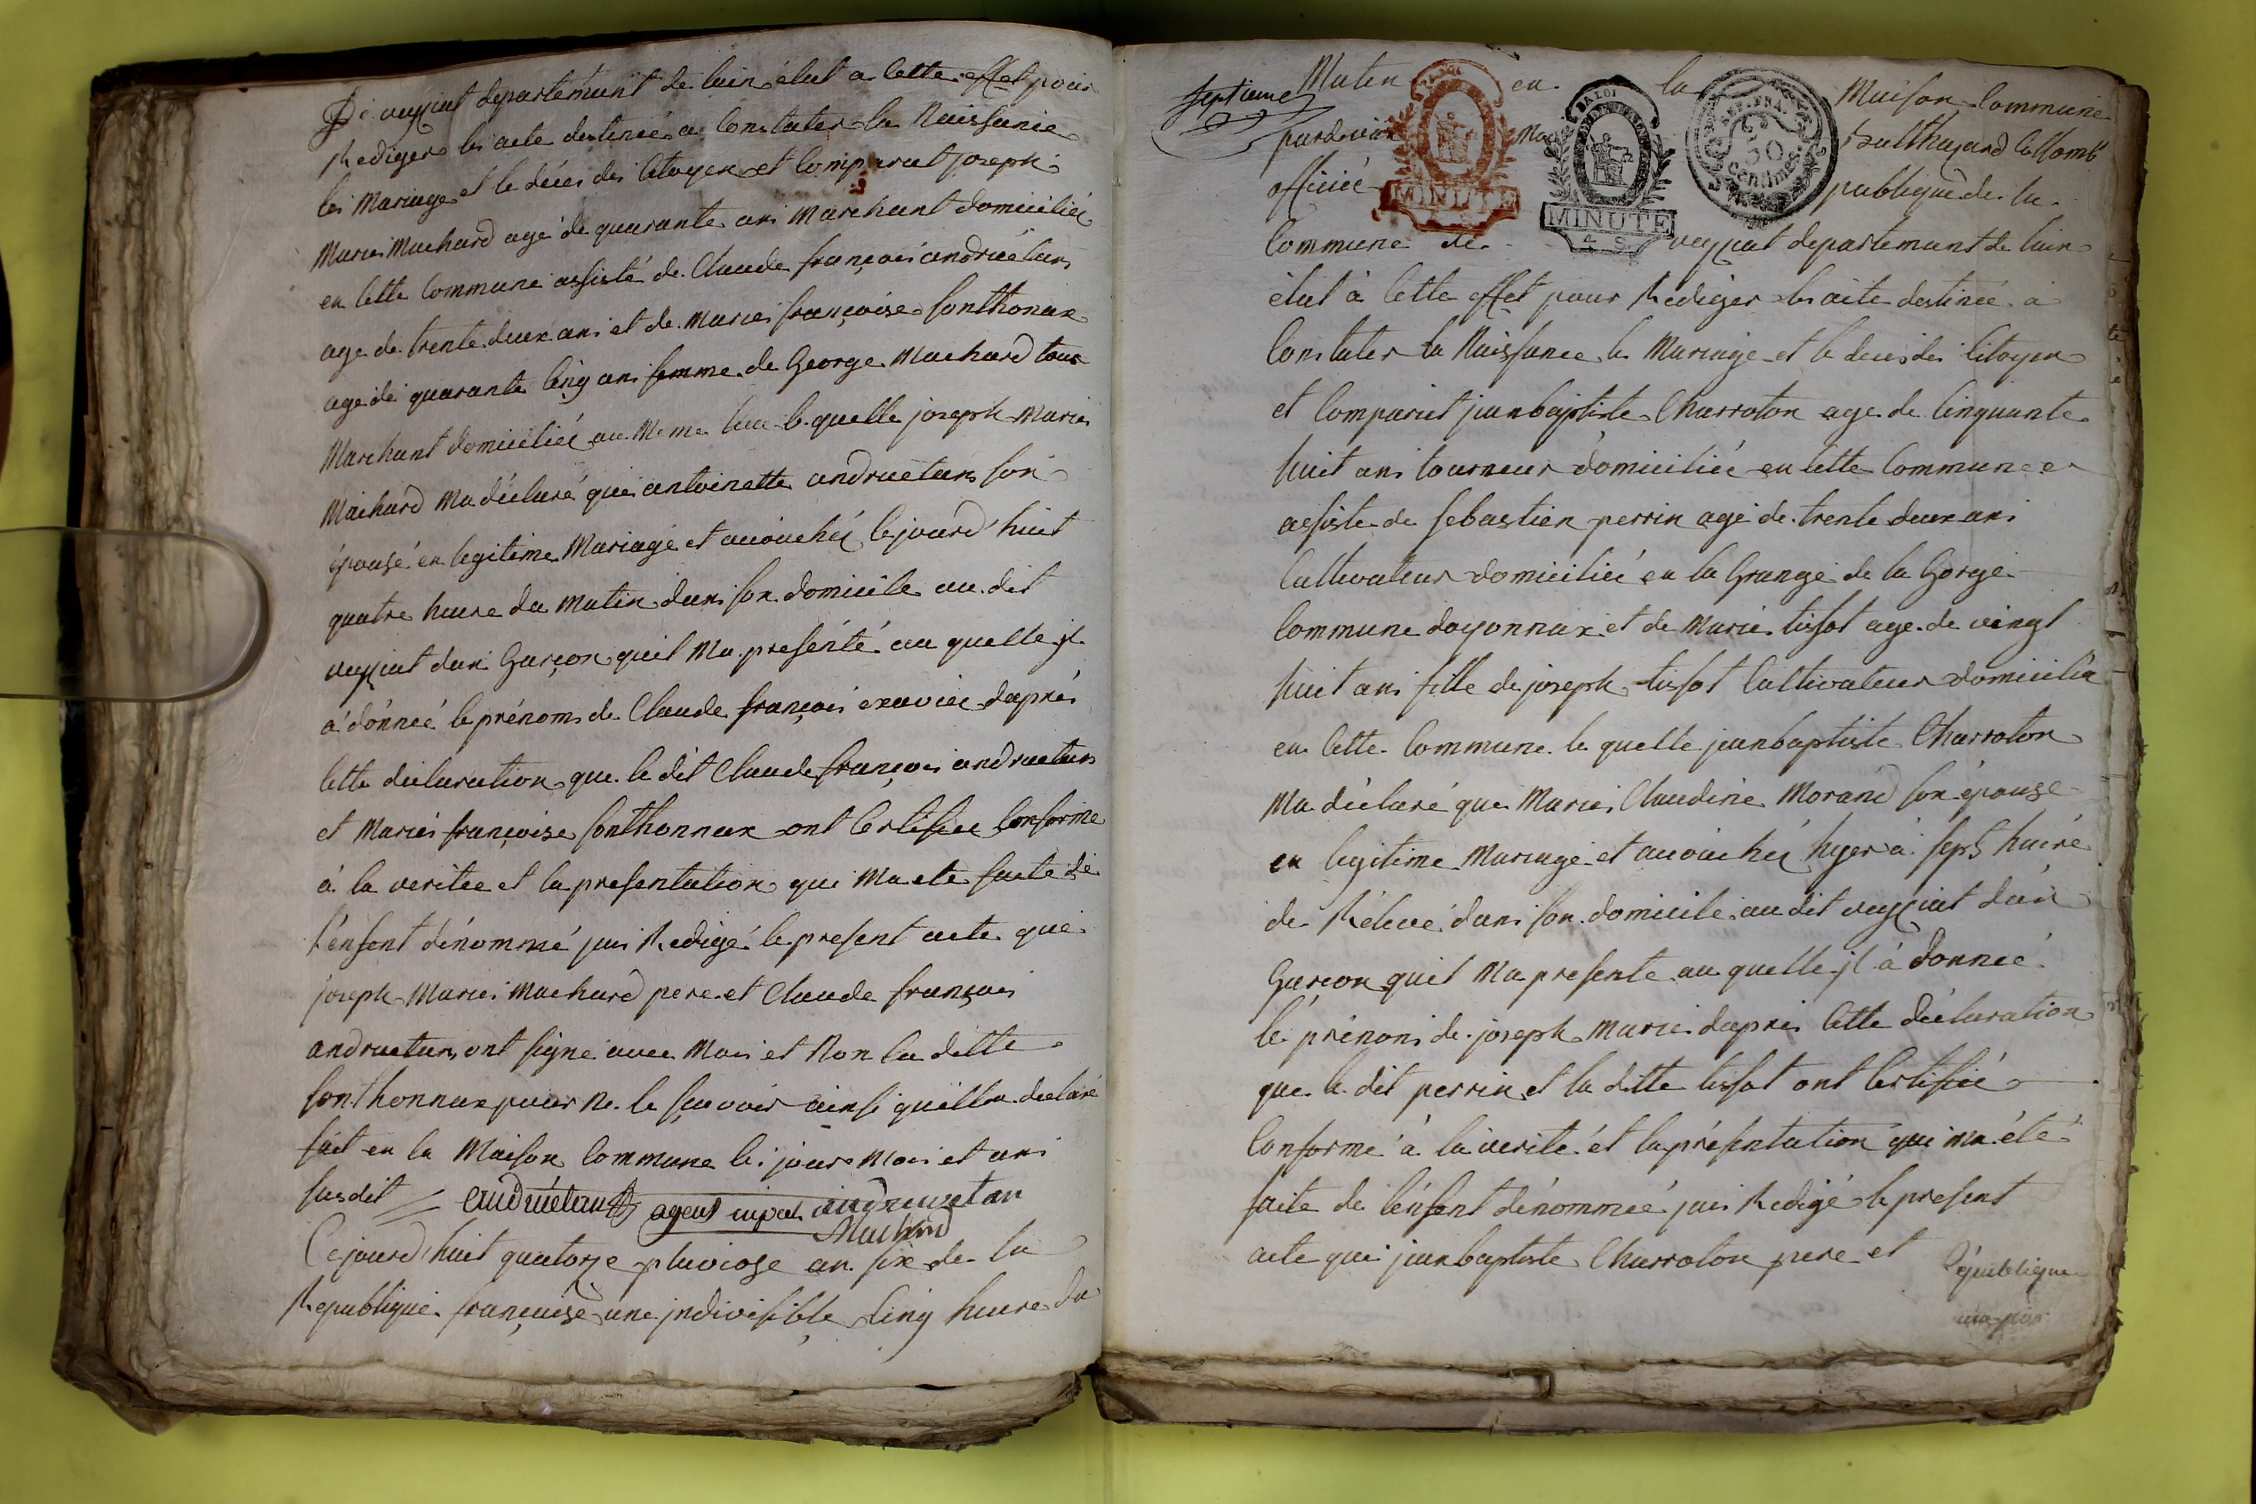 De veyziat departement de lain élut a cette effet pour
Rediger les acte destinée a Constater la Naissance
les Mariage et le décès des Citoyen et Comparut joseph
Marie Machard agé de quarante ans Marchant domiciliée
en cette Commune assisté de Claude françois andruétan
age de trente deux ans et de Marie françoise sonthonax
age de quarante cinq ans femme de George Machard tous
Marchant domiciliée au Meme lieu le quelle joseph Marie
Machard Ma déclaré que antoinette andruétan son
épouse en legitime Mariage et accouchéé cejourd'huit
quatre heure du matin dans son domicile au dit
veyziat dun Garçon quil Ma présénté au quelle jl
a donnéé le prénom de Claude françois exavier daprés
cette déclaration que le dit Claude françois andruetan
et Marie françoise sonthonnax ont Certifiee Conforme
à la veritee et la presentation qui Ma ete faite de
l'énfant dénommé jai Redigé le present acte que
joseph Marie Machard pere et Claude françois
andruetan ont signé avec Moi et Non la ditte
sonthonnax pour Ne le sçavoir ainsi quelle a declaré
fait en la Maison Commune les jour Mois et ans
susdit andruétan agent mpal andruetan
Machard
Cejourd'huit quatorze pluviose an six de la
Republique française une jndivisible Cinq heure du
septieme
Matin en la Maison Commune
pardevant Moi Balthazard Collomb
officiée publique de la
Commune de veyziat departement de lain
élut à cette effet pour Rediger les acte destinée à
Constater la Naissance le Mariage et le deces des Citoyen
et Comparut jeanbaptiste Charroton age de Cinquante
huit ans tourneur domiciliée en cette Commune
assiste de sebastien perrin agé de trente deux ans
Cultivateur domiciliée en la Grange de la Gorge
Commune doyonnax et de Marie tissot age de vingt
huit ans fille de joseph tissot Cultivateur domicilié
en cette Commune le quelle jeanbaptiste Charroton
Ma déclaré que Marie Claudine Morand son épouse
en legitime Mariage et accouchéé hyer à sept heure
de Rélevé dans son domicile au dit veyziat dun
Garçon quil Ma presente au quelle jl à donnéé
le prénom de joseph Marie daprés Cette déclaration
que le dit perrin et la ditte tissot ont Certifiéé
Conforme à la verité et la présentation qui Ma été
faite de lénfant dénommeé jai Redigé le present
acte que jeanbaptiste Charroton pere et
République
MINUTE
MINUTE
50
Centimes
LA LOI